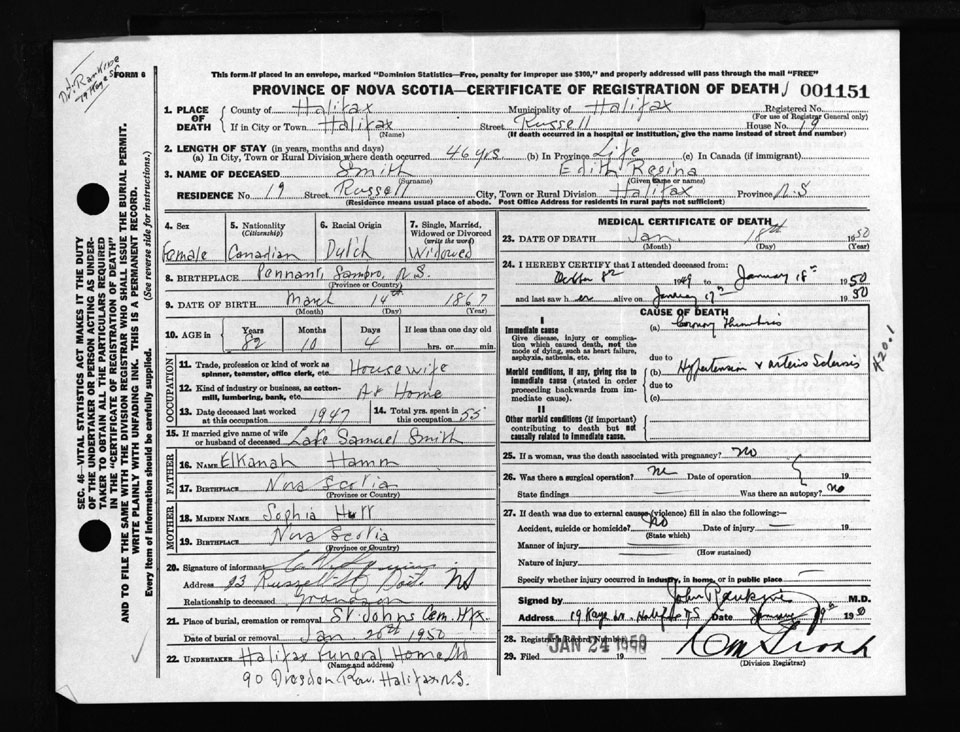 Dr. Rankine
79 Kaye St
FORM 6
This form if placed in an envelope, marked "Dominion Statistics—Free, penalty for improper use $300," and properly addressed will pass through the mail "FREE"
PROVINCE OF NOVA SCOTIA—CERTIFICATE OF REGISTRATION OF DEATH 001151
SEC. 46—VITAL STATISTICS ACT MAKES IT THE DUTY
OF THE UNDERTAKER OR PERSON ACTING AS UNDER-
TAKER TO OBTAIN ALL THE PARTICULARS REQUIRED
IN THE "CERTIFICATE OF REGISTRATION OF DEATH"
AND TO FILE THE SAME WITH THE DIVISION REGISTRAR WHO SHALL ISSUE THE BURIAL PERMIT.
WRITE PLAINLY WITH UNFADING INK. THIS IS A PERMANENT RECORD.
Every item of Information should be carefully supplied. (See reverse side for instructions.)
1. PLACE OF DEATH
County of Halifax Municipality of Halifax Registered No.
(For use of Registrar General only)
If in City or Town Halifax Street Russell House No. 19
(Name) (If death occurred in a hospital or institution, give the name instead of street and number)
2. LENGTH OF STAY (in years, months and days)
(a) In City, Town or Rural Division where death occurred 46 yrs (b) In Province Life (c) In Canada (if immigrant)
3. NAME OF DECEASED Smith Edith Regina
(Surname) (Given name or names)
RESIDENCE No. 19 Street Russell City, Town or Rural Division Halifax Province N.S
(Residence means usual place of abode. Post Office Address for residents in rural parts not sufficient)
4. Sex
Female
5. Nationality
(Citizenship)
Canadian
6. Racial Origin
Dutch
7. Single, Married,
Widowed or Divorced
(write the word)
Widowed
8. BIRTHPLACE Pennant, Sambro, N.S.
(Province or Country)
9. DATE OF BIRTH March 14th 1867
(Month) (Day) (Year)
10. AGE in
Years Months Days If less than one day old
82 10 4 hrs. or min.
OCCUPATION
11. Trade, profession or kind of work as
spinner, teamster, office clerk, etc. Housewife
12. Kind of industry or business, as cotton-
mill, lumbering, bank, etc. At Home
13. Date deceased last worked
at this occupation 1947
14. Total yrs. spent in
this occupation 55
15. If married give name of wife
or husband of deceased Late Samuel Smith
FATHER
16. NAME Elkanah Hamm
17. BIRTHPLACE Nova Scotia
(Province or Country)
MOTHER
18. MAIDEN NAME Sophia
19. BIRTHPLACE Nova Scotia
(Province or Country)
20. Signature of informant
Address Russell St NS
Relationship to deceased Grandson
21. Place of burial, cremation or removal St Johns Cem. Hfx.
Date of burial or removal Jan. 20th 1950
22. UNDERTAKER Halifax Funeral Home Ltd
(Name and address)
90 Dresden Row. Halifax N.S.
MEDICAL CERTIFICATE OF DEATH
23. DATE OF DEATH Jan. 18th 1950
(Month) (Day) (Year)
24. I HEREBY CERTIFY that I attended deceased from:
1949 January 18th 1950
and last saw her alive on January 17th 1950
CAUSE OF DEATH
I
Immediate cause
Give disease, injury or complica-
tion which caused death, not the
mode of dying, such as heart failure,
asphyxia, asthenia, etc.
(a) Coronary Thrombosis
due to
Morbid conditions, if any, giving rise to
immediate cause (stated in order
proceeding backwards from im-
mediate cause).
(b) Hypertension & Arterio Sclerosis
due to
(c)
420.1
II
Other morbid conditions (if important)
contributing to death but not
causally related to immediate cause.
25. If a woman, was the death associated with pregnancy? No
26. Was there a surgical operation? No Date of operation 19
State findings Was there an autopsy? No
27. If death was due to external causes (violence) fill in also the following:—
Accident, suicide or homicide? No Date of injury 19
(State which)
Manner of injury
(How sustained)
Nature of injury
Specify whether injury occurred in industry, in home, or in public place
Signed by John Rankine M.D.
Address 79 Kaye St. Halifax N.S Date January 1950
28. Registrar's Record Number
JAN 24 1950
29. Filed 19
(Division Registrar)